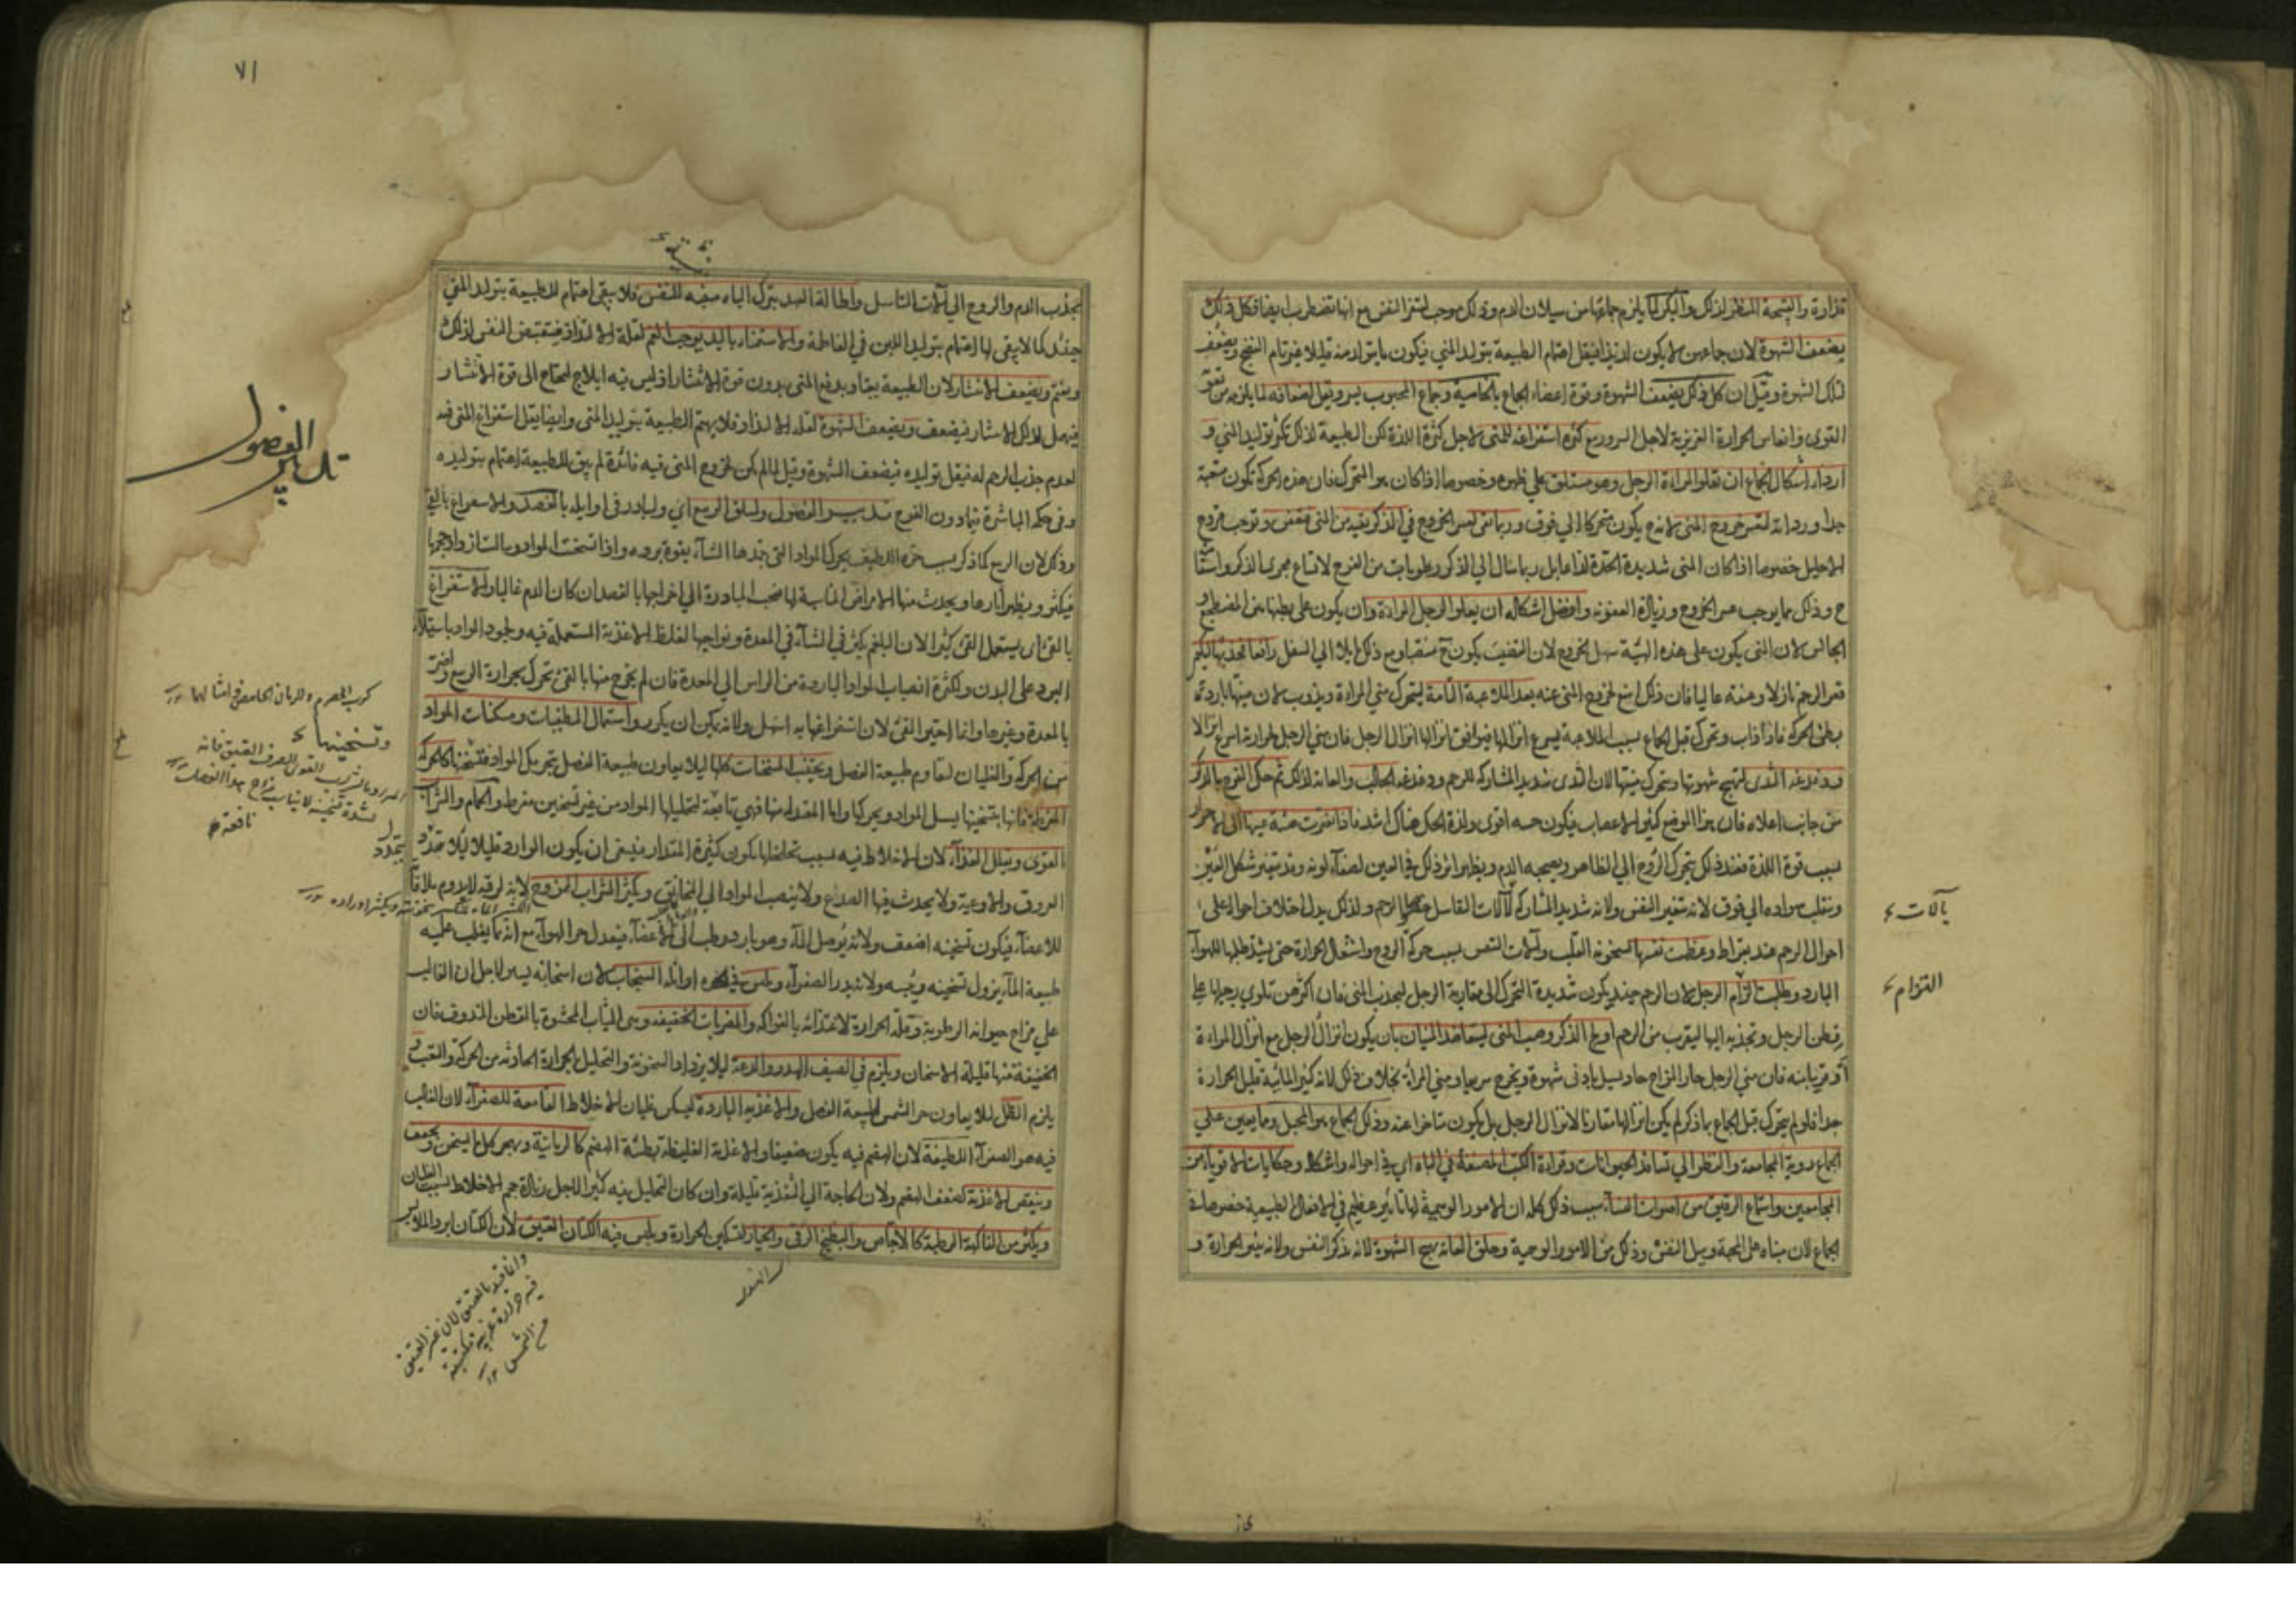 قذارة والقبيحة المنظر لذلك والبكر لما يلزم جماعها من سيلان الدم وذلك موجب لتنفر النفس مع انها تضطرب ايضا فكل ذلك
يضعف الشهوة لان جماعهن لا يكون لذيذا فيقل اهتمام الطبيعة بتوليد المني فيكون ما يتولد منه قليلا غير تام النضج ويضعف
تلك الشهوة وقيل ان كل ذلك يضعف الشهوة وقوة اعضاء الجماع بالخاصية وجماع المحبوب يسر ويقل اضعافه لما يلزمه من تقوي
القوى وانعاش الحرارة الغريزية لاجل السرور مع كثرة استفراغه للمني لاجل كثرة اللذة لكن الطبيعة لذلك تكثر توليد المني و
اردأ اشكال الجماع ان تعلو المراءة الرجل وهو مستلق على ظهره وخصوصا اذا كان هو المتحرك فان هذه الحركة تكون متعبة
جدا ورداءته لتعسر خروج المني لانه ح يكون متحركا الى فوق وربما بقي لعسر الخروج في الذكر بقية من المني فتعفن وتوجب قروح
الاحليل خصوصا اذا كان المني شديد الحدة لذاعا بل ربما سال الى الذكر رطوبات من الفرج لاتساع مجرى الذكر
ح وذلك مما يوجب عسر الخروج وزيادة العفونة وافضل اشكاله ان يعلو الرجل المراءة وان يكون على بطنها من المضطجع و
الجالس لان المني يكون على هذه الهيئة سهل الخروج لان القضيب يكون ح منتصبا ومع ذلك مايلا الى اسفل رافعا فخذيها ليكون
قعر الرحم نازلا وعنقه عاليا فان ذلك امنع لخروج المني عنه بعد الملاعبة التامة ليتحرك مني المراءة ويذوب لان منيها بارد
بطئ الحركة فاذا ذاب وتحرك قبل الجماع بسبب الملاعبة يسرع انزالها فيوافق انزالها انزال الرجل فان مني الرجل لحرارته اسرع انزالا
ودغدغة الثدي لتهيج شهوتها ويتحرك منيها لان الثدي شديد المشاركة للرحم ودغدغة الحالب والعانة لذلك ثم حك الفرج بالذكر
من جانب اعلاه فان هذا الموضع كثير الاعصاب فيكون حسه اقوى ولذة الحك هناك اشد فاذا تغيرت هيئة عينها الى الاحمرار
بسبب قوة اللذة فعند ذلك يتحرك الروح الى الظاهر ويصحبه الدم ويظهر اثر ذلك في العين لصفاء لونه وقد يتغير شكل العين
وينقلب سواده الى فوق لانه متغير النفس ولانه شديد المشاركة لآلات التناسل خصوصا الرحم ولذلك يدل اختلاف احواله على
احوال الرحم عند بقراط وعظمت نفسها لسخونة القلب وآلات التنفس بسبب حركة الروح واشتعال الحرارة حتى يشتد طلبها للهواء
البارد وطلبت التزام الرجل لان الرحم حينئذ يكون شديدة التحرك الى مقاربة الرجل لتجذب المني فان اكثرهن تلوي رجلها على
قطن الرجل وتجذبه اليها ليقرب من الرحم اولج الذكر وصب المني ليتعاضد المنيان بان يكون انزال الرجل مع انزال المراءة
او قريبا منه فان مني الرجل حار المزاج حاد يسيل بادنى شهوة ويخرج سريعا ومني المراءة بخلاف ذلك لانه كثير المائية قليل الحرارة
جدا فلو لم يتحرك قبل الجماع بما ذكر لم يكن انزالها مقارنا لانزال الرجل بل يكون متاخرا عنه وذلك الجماع هو المحبل ومما يعين على
الجماع روية المجامعة والنظر الى تسافد الحيوانات وقراءة الكتب المصنفة في الباه اي في احواله واشكاله وحكايات الاقوياء من
المجامعين واستماع الرقيق من اصوات النساء بسبب ذلك كله ان الامور الوهمية لها تاثير عظيم في الافعال الطبيعية خصوصا
الجماع لان مبناه على المحبة وميل النفس وذلك من الامور الوهمية وحلق العانة يهيج الشهوة لانه يذكر النفس ولانه يثير الحرارة و
بآلات
التزام
٧١
يجذب الدم والروح الى آلات التناسل واطالة العهد بترك الباه منسية للنفس فلا يبقى اهتمام للطبيعة بتوليد المني
حينئذ كما لا يبقى لها اهتمام بتوليد اللبن في الفاطمة والاستمناء باليد يوجب الغم لقلة الالتذاذ فتنقبض النفس لذلك
وتغتم ويضعف الانتشار لان الطبيعة يعتاد بدفع المني بدون قوة الانتشار اذ ليس فيه ايلاج ليحتاج الى قوة الانتشار
فيهمل لذلك الانتشار فيضعف ويضعف الشهوة لقلة الالتذاذ فلا يهتم الطبيعة بتوليد المني وايضا يقل استفراغ المني فيه
لعدم جذب الرحم له فيقل توليده فيضعف الشهوة وقيل لما لم يكن لخروج المني فيه فائدة لم يبق للطبيعة اهتمام بتوليده
وفي حكمه المباشرة فيما دون الفرج تدبير الفصول وليلق الربيع اي وليبادر في اوايله بالفصد والاستفراغ بالقئ
وذلك لان الربيع كما ذكر بسبب حره اللطيف يحرك المواد التي جمدها الشتاء بقوة برده واذا تسخنت المواد وبالتسازداد حجمها
فيكثر ويظهر آثارها ويحدث منها الامراض المناسبة لها فيجب المبادرة الى اخراجها بالفصد ان كان الدم غالبا والاستفراغ
بالقئ اي يستعمل القئ كثيرا لان البلغم يكثر في الشتاء في المعدة ونواحيها لغلظ الاغذية المستعملة فيه ولجمود المواد باستيلاء
البرد على البدن ولكثرة انصباب المواد الباردة من الراس الى المعدة فان لم يخرج منها بالقئ تحرك بحرارة الربيع واضرت
بالمعدة وغيرها وانما اختير القئ لان استفراغها به اسهل ولانه يمكن ان يكرر واستعمال المطفيات ومسكنات المواد
من الحركة والغليان ليقاوم طبيعة الفصل ويجتنب المسخنات كلها ليلا يعاون طبيعة الفصل بتحريك المواد فتسخنها كالحركة
المفرطة فانها بتسخينها يسيل المواد ويحركها واما المعتدلة منها فهي نافعة لتحليلها المواد من غير تسخين مفرط والحمام والشراب
القوى ويقلل الغذاء لان الاخلاط فيه بسبب تخلخلها يكون كثيرة المقدار فينبغي ان يكون الوارد قليلا ليلا يتمدد
العروق والاوعية ولا يحدث فيها الصدع ولا ينصب المواد الى المخانق ويكثر الشراب الممزوج لانه لرقته لا يدوم ملاقاته
للاعضاء فيكون تسخينه اضعف ولانه يوصل الماء وهو بارد رطب الى الاعضاء فيعدل حر الهواء مع انه بما يغلب عليه
طبيعة الماء يزول تسخينه ويبسه ولانه يدر الصفراء ويلبس فيه السنجاب لان اسخانه يسير لاجل ان الغالب
على مزاج حيوانه الرطوبة وقلة الحرارة لاغتذائه بالفواكه والمضربات الخفيفة وهي الثياب المحشوة بالقطن المندوف فان
الخفيفة منها قليلة الاسخان ويلزم في الصيف الهدوء والدعة ليلا يزداد السخونة والتحليل بالحرارة الحادثة من الحركة والتعب و
يلزم الظل ليلا يعاون حر الشمس لطبيعة الفصل والاغذية الباردة ليسكن غليان الاخلاط القامعة للصفراء لان الغالب
فيه هو الصفراء اللطيفة لان الهضم فيه يكون ضعيفا والاغذية الغليظة بطئة الهضم كالرمانية ويهجر كل ما يسخن ويجفف
وينقص الاغذية لضعف الهضم ولان الحاجة الى التغذية قليلة وان كان التحليل فيه كثيرا لاجل زيادة حجم الاخلاط بسبب الغليان
ويكثر من الفاكهة الرطبة كالاجاص والبطيخ الرقي والخيار لتسكين الحرارة ويلبس فيه الكتان العتيق لان الكتان ابرد الملابس
تدبير الفصول
وتسخينها
نافعة
يتمدد
وانما قيد بالعتيق لان غير العتيق